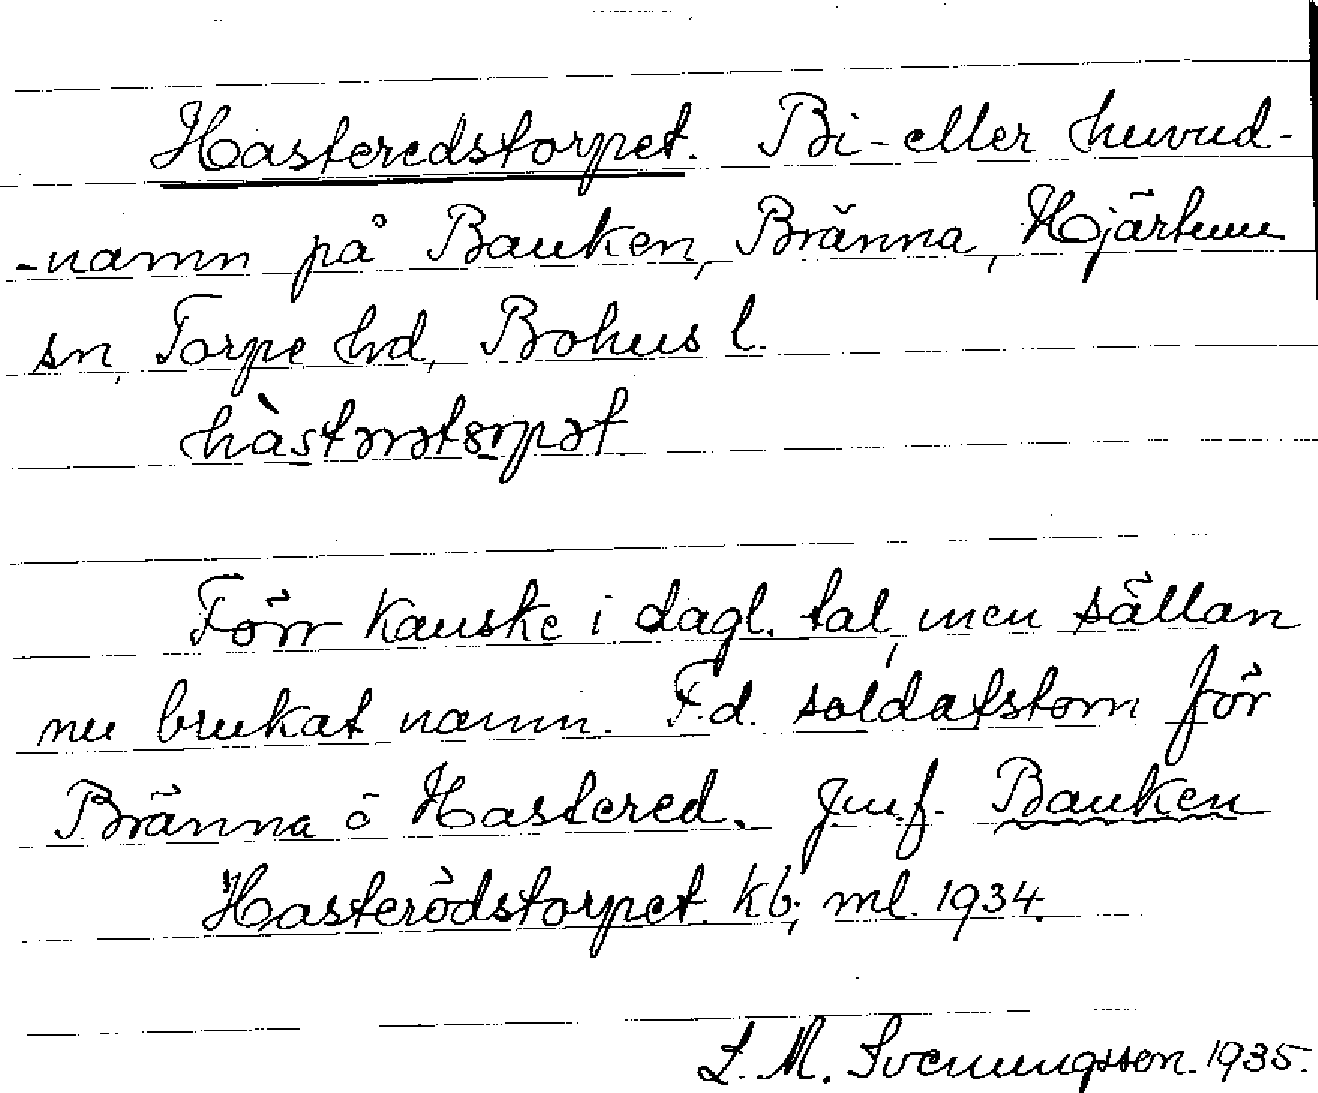 Hasteredstorpet. Bi- eller huvud-
-namn på Bauken, Bränna, Hjärtum
sn, Torpe hd, Bohus l.
hàstərətsrpət
Förr kanske i dagl. tal, men sällan
nu brukat namn. F.d. soldatstom för
Bränna o Hastered. Jmf. Bauken
Hasterödstorpet. kb; ml. 1934.
L. M. Svenungsson. 1935.